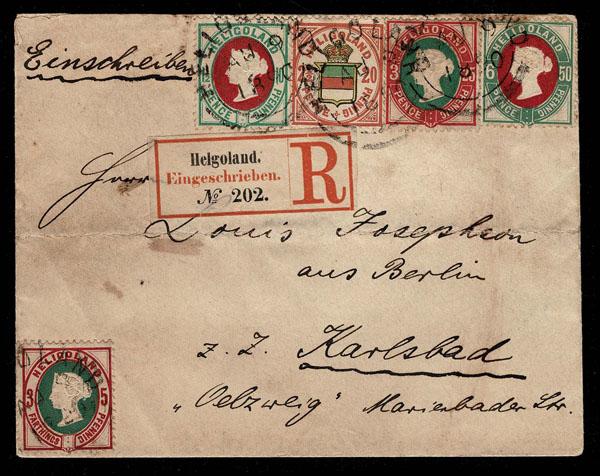 Einschreiben
HELIGOLAND
PENCE
HELIGOLAND
20
PFENNIG
HELIGOLAND
PENCE
PFENNIG
HELIGOLAND
6 50
PENCE PFENNIG
Helgoland.
Eingeschrieben.
№ 202.
R
Herrn
Louis Josephson
aus Berlin
z. Z. Karlsbad
„Oelzweig" Marienbader Str.
HELIGOLAND
3 5
FARTHINGS PFENNIG